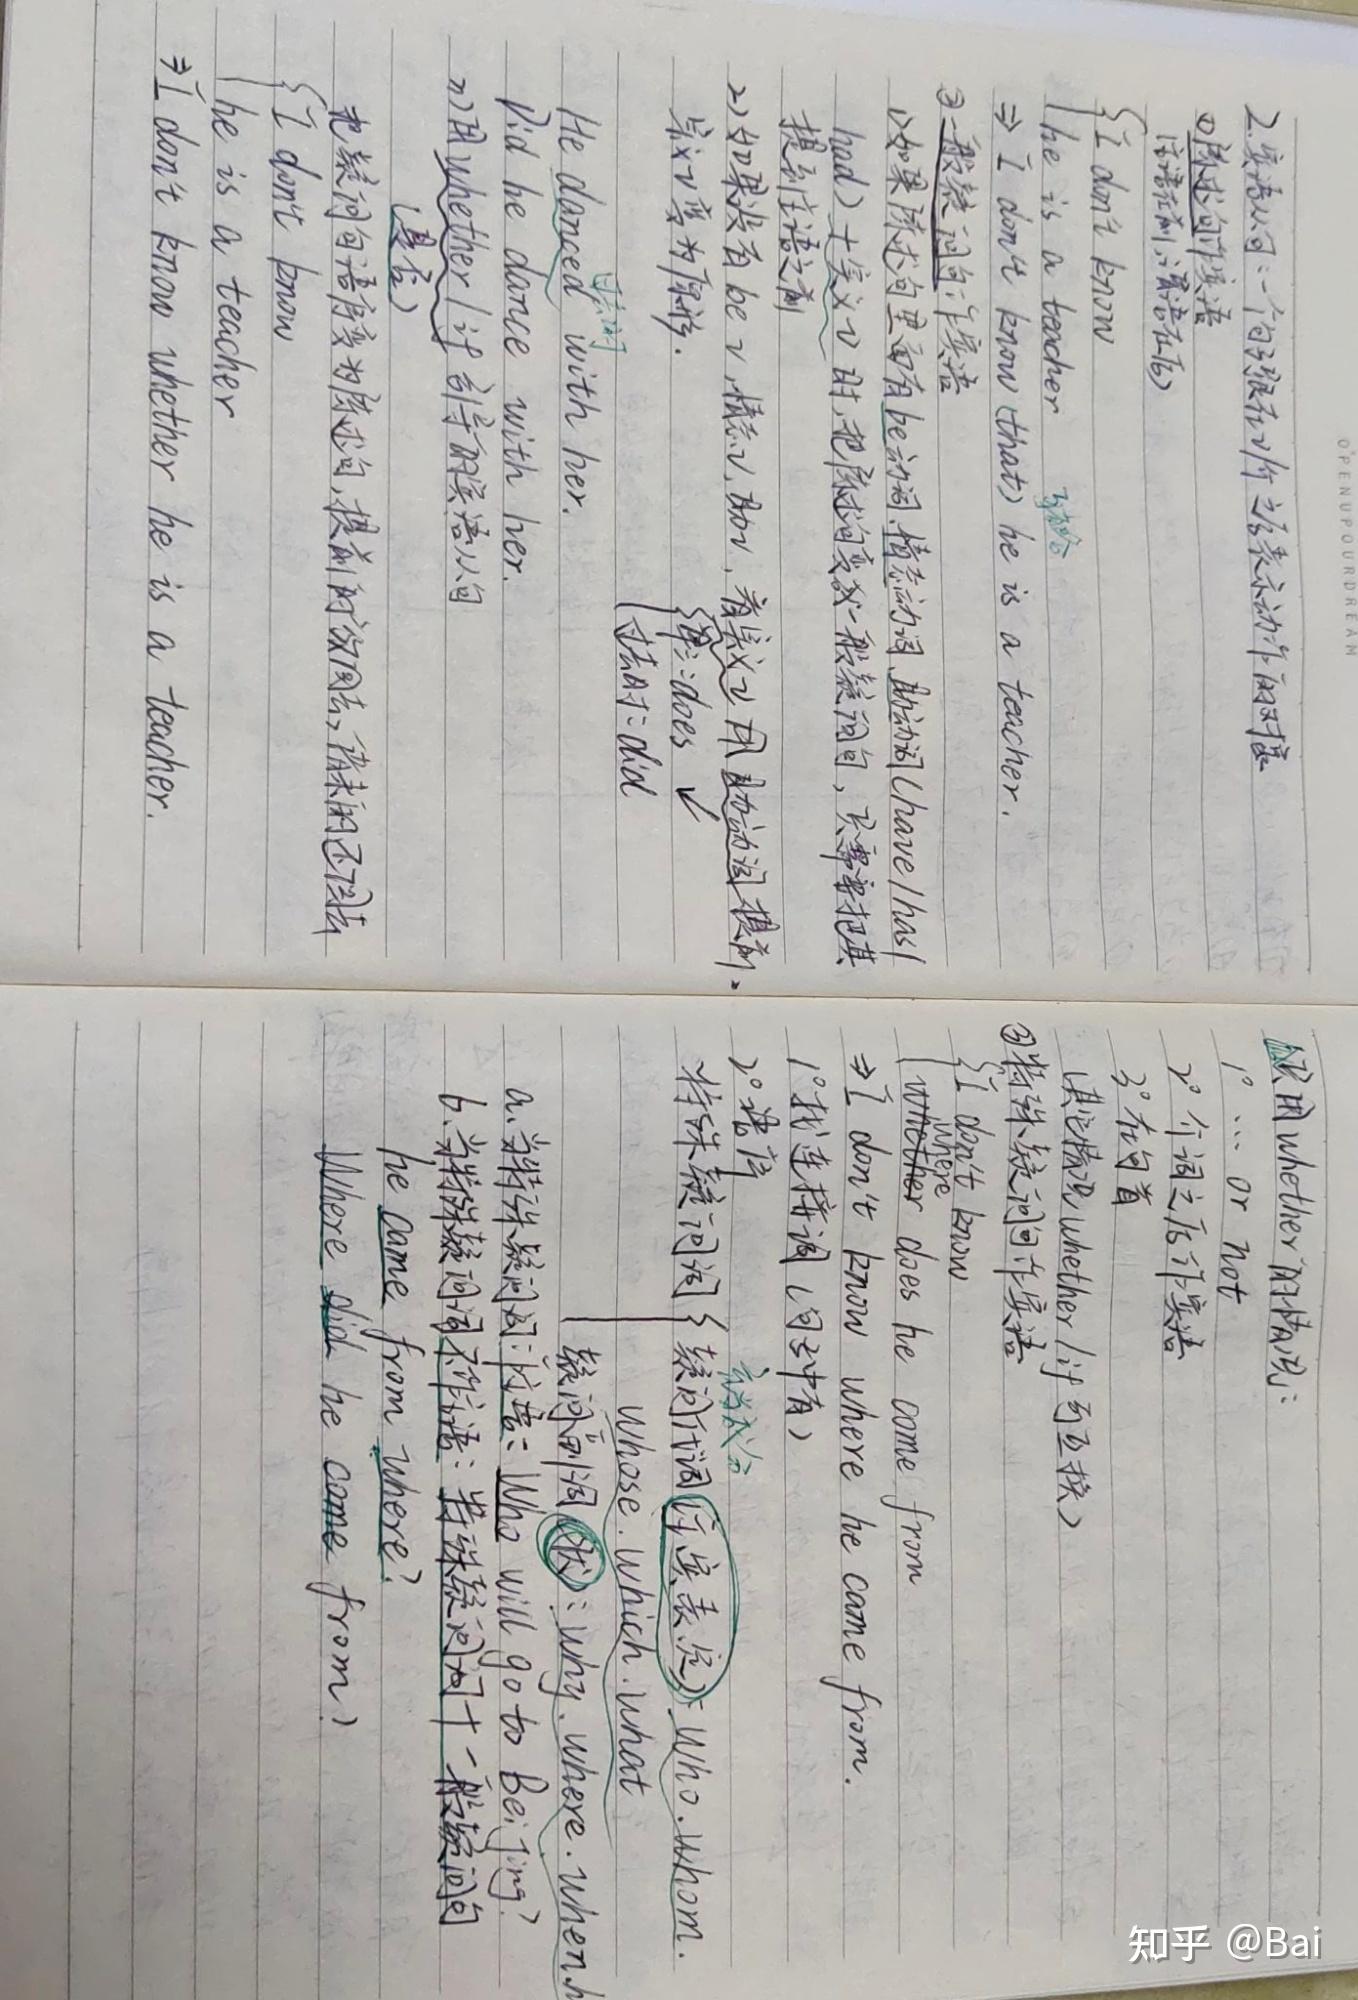 OPENUPOURDREAM
2.宾语从句:一个句子放在v/介之后表示动作的对象
①陈述句作宾语
(主语在前,谓语在后)
{I don't know
he is a teacher
可省
⇒ I don't know (that) he is a teacher.
②一般疑问句作宾语
1)如果陈述句里面有be动词.情态动词.助动词(have/has/
had)+实义v时,把陈述句变成一般疑问句,只需要把其
提到主语之前
2)如果没有be v,情态v,助v,看实义v用助动词提前.
实义v变为原形.
{单三:does ✓
过去时:did
过去时
He danced with her.
Did he dance with her.
用whether/if引导的宾语从句
(是否)
把疑问句语序变为陈述句,提前的放回去,
{I don't know
he is a teacher
⇒ I don't know whether he is a teacher.
只用whether的情况:
1° ... or not
2° 介词之后作宾语
3° 在句首
其它情况whether/if可互换)
③特殊疑问句作宾语
{I don't know
where
whether does he come from
⇒ I don't know where he came from.
1°找连接词(句子中有)
2°语序
特殊疑问词{疑问代词(主宾表定):Who.whom.
whose.which.what
疑问副词(状):why.where.when.h
a.当特殊疑问词作主语:Who will go to Beijing?
b.当特殊疑问词不作主语:特殊疑问词+一般疑问句
he came from where?
Where did he come from?
知乎 @Bai